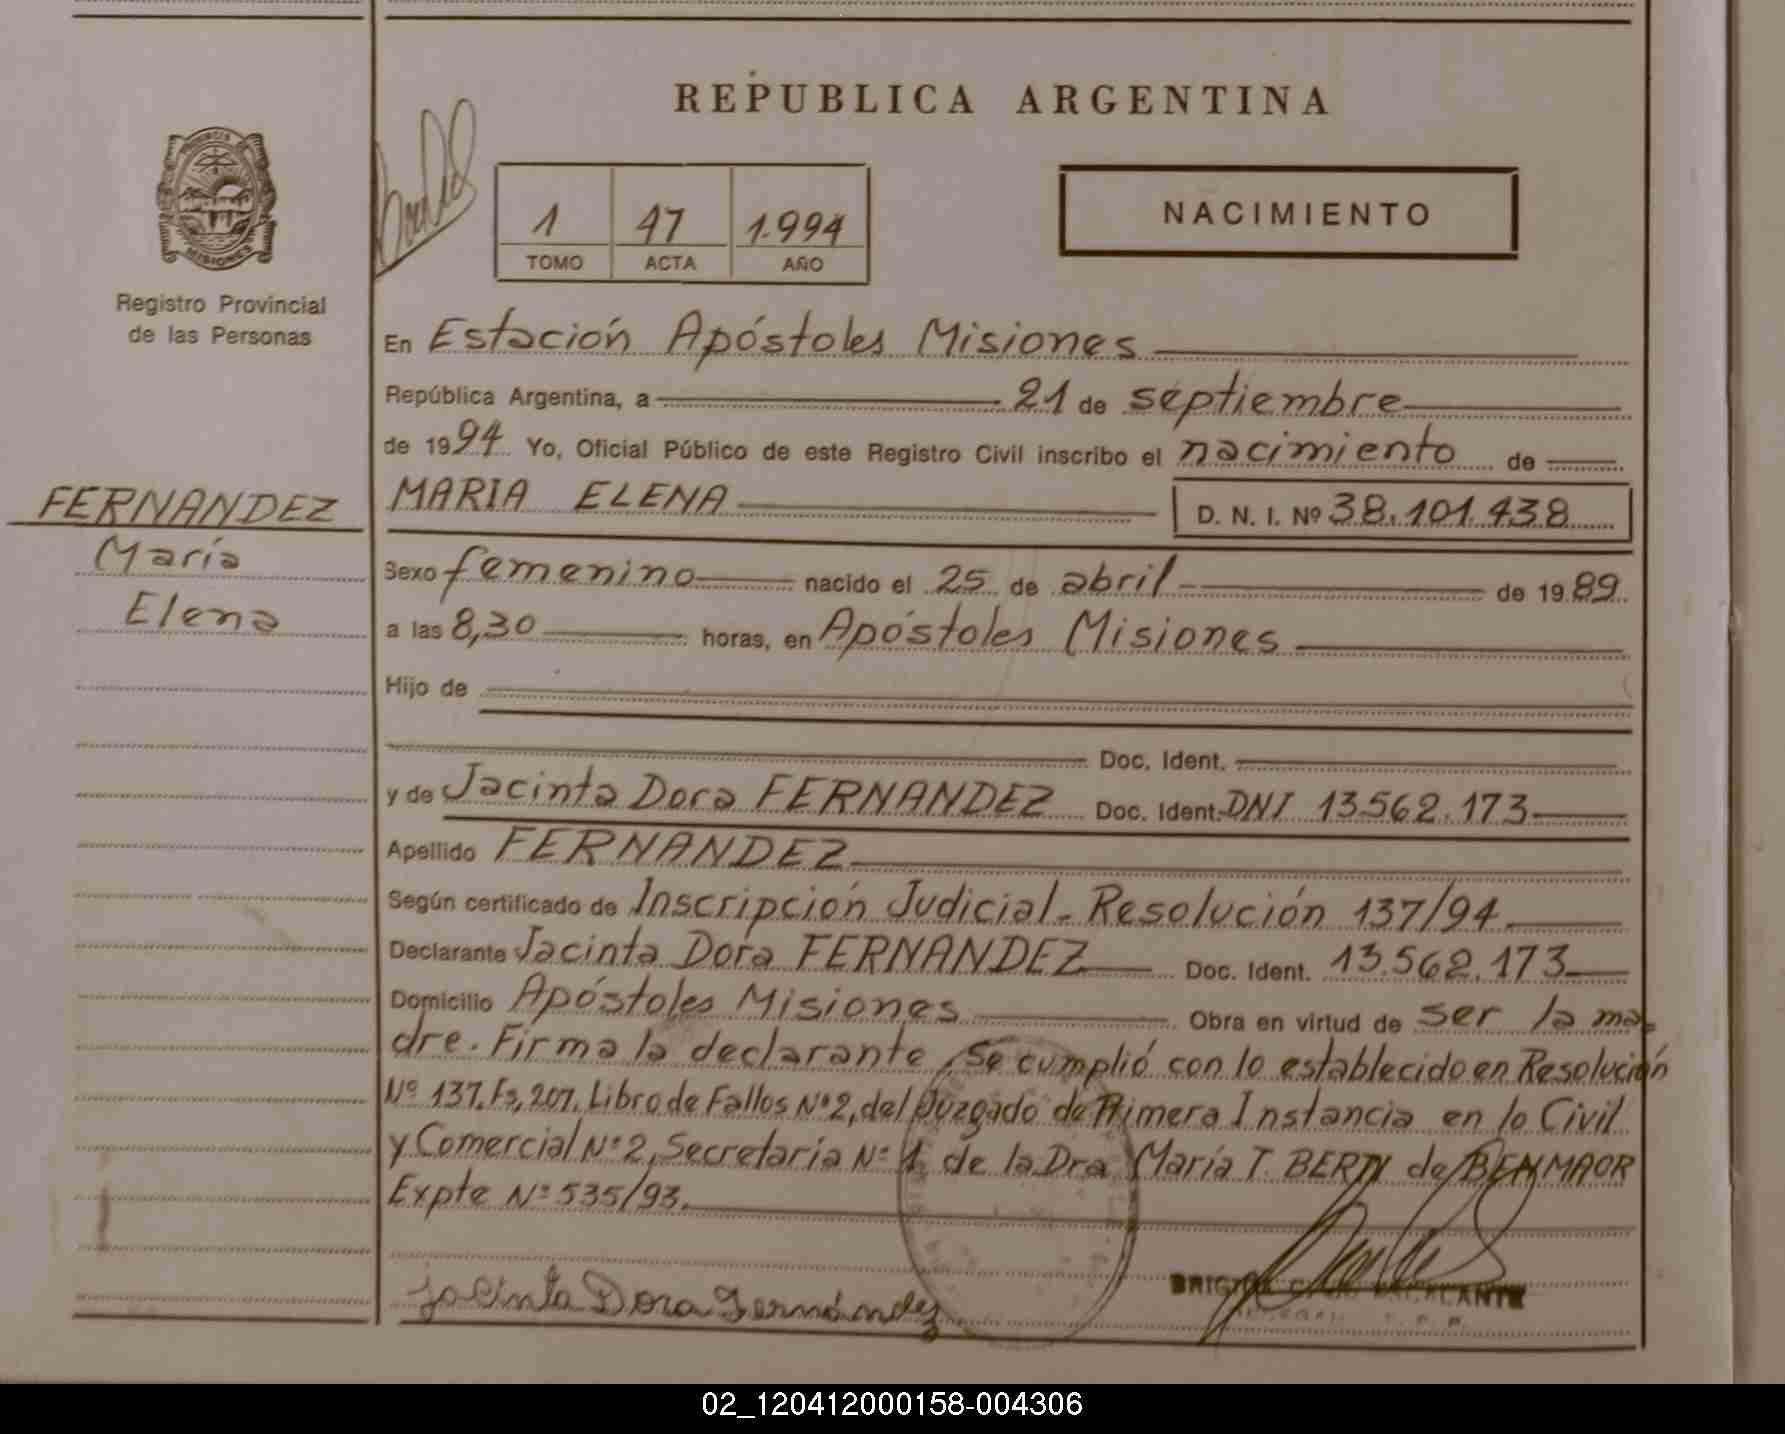 REPUBLICA ARGENTINA
PROVINCIA
MISIONES
Registro Provincial
de las Personas
1 47 1.994
TOMO ACTA AÑO
NACIMIENTO
En Estación Apóstoles Misiones
República Argentina, a 21 de septiembre
de 1994 Yo, Oficial Público de este Registro Civil inscribo el nacimiento de
FERNANDEZ
María
Elena
MARIA ELENA D. N. I. Nº 38.101.438
Sexo femenino nacido el 25 de abril de 1989
a las 8,30 horas, en Apóstoles Misiones
Hijo de
Doc. Ident.
y de Jacinta Dora FERNANDEZ Doc. Ident. DNI 13.562.173
Apellido FERNANDEZ
Según certificado de Inscripción Judicial - Resolución 137/94
Declarante Jacinta Dora FERNANDEZ Doc. Ident. 13.562.173
Domicilio Apóstoles Misiones Obra en virtud de ser la ma-
dre. Firma la declarante, Se cumplió con lo establecido en Resolución
Nº 137, Fs, 207, Libro de Fallos Nº 2, del Juzgado de Primera Instancia en lo Civil
y Comercial Nº 2, Secretaría Nº 1 de la Dra María T. BERN de BENMAOR
Expte Nº 535/93.
Jacinta Dora Fernández
02_120412000158-004306